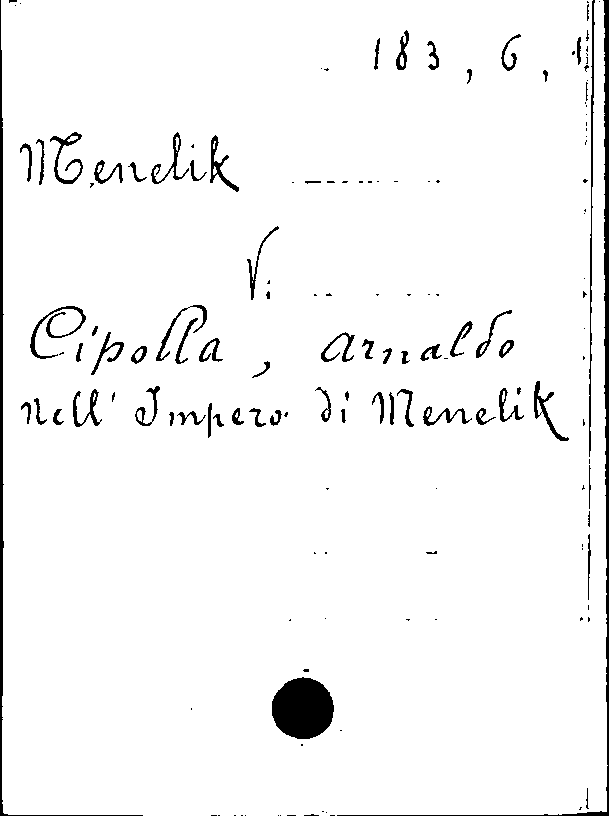 183, 6, 1
Menelik
V:
Cipolla, Arnaldo
nell' Impero di Menelik